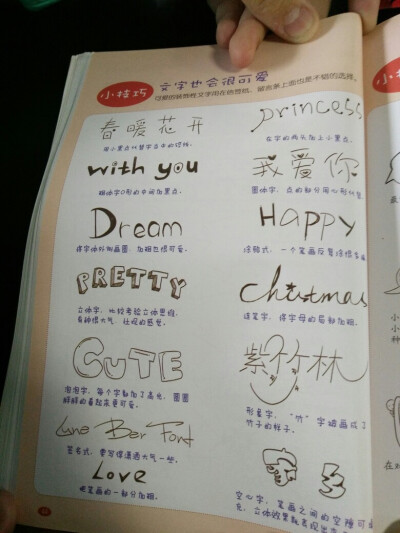 小技巧
文字也会很可爱
可爱的装饰性文字用在
也是不错的选择。
春暖花开
用小黑点代替字当中的短线。
with you
粗体字O形的中间加黑点。
Dream
将字体外侧画圈，加粗也很可爱。
PRETTY
立体字，比较考验立体思维，
有种很大气、壮观的感觉。
CUTE
泡泡字，每个字都加了高光，圆圆
胖胖的看起来更可爱。
Love
把笔画的一部分加粗。
princess
在字的两头加上小黑点。
我爱你
圆体字，点的部分用心形代替
Happy
涂鸦式，一个笔画反复涂很多
christmas
连笔字，将字母的局部加粗。
紫竹林
形象字，“竹”字描画成了
竹子的样子。
空心字，笔画之间的空隙可
充，立体效果就表现出来
签名式，要写得潇洒大气一些。